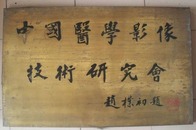 中國醫學影像
技術研究會
趙樸初題